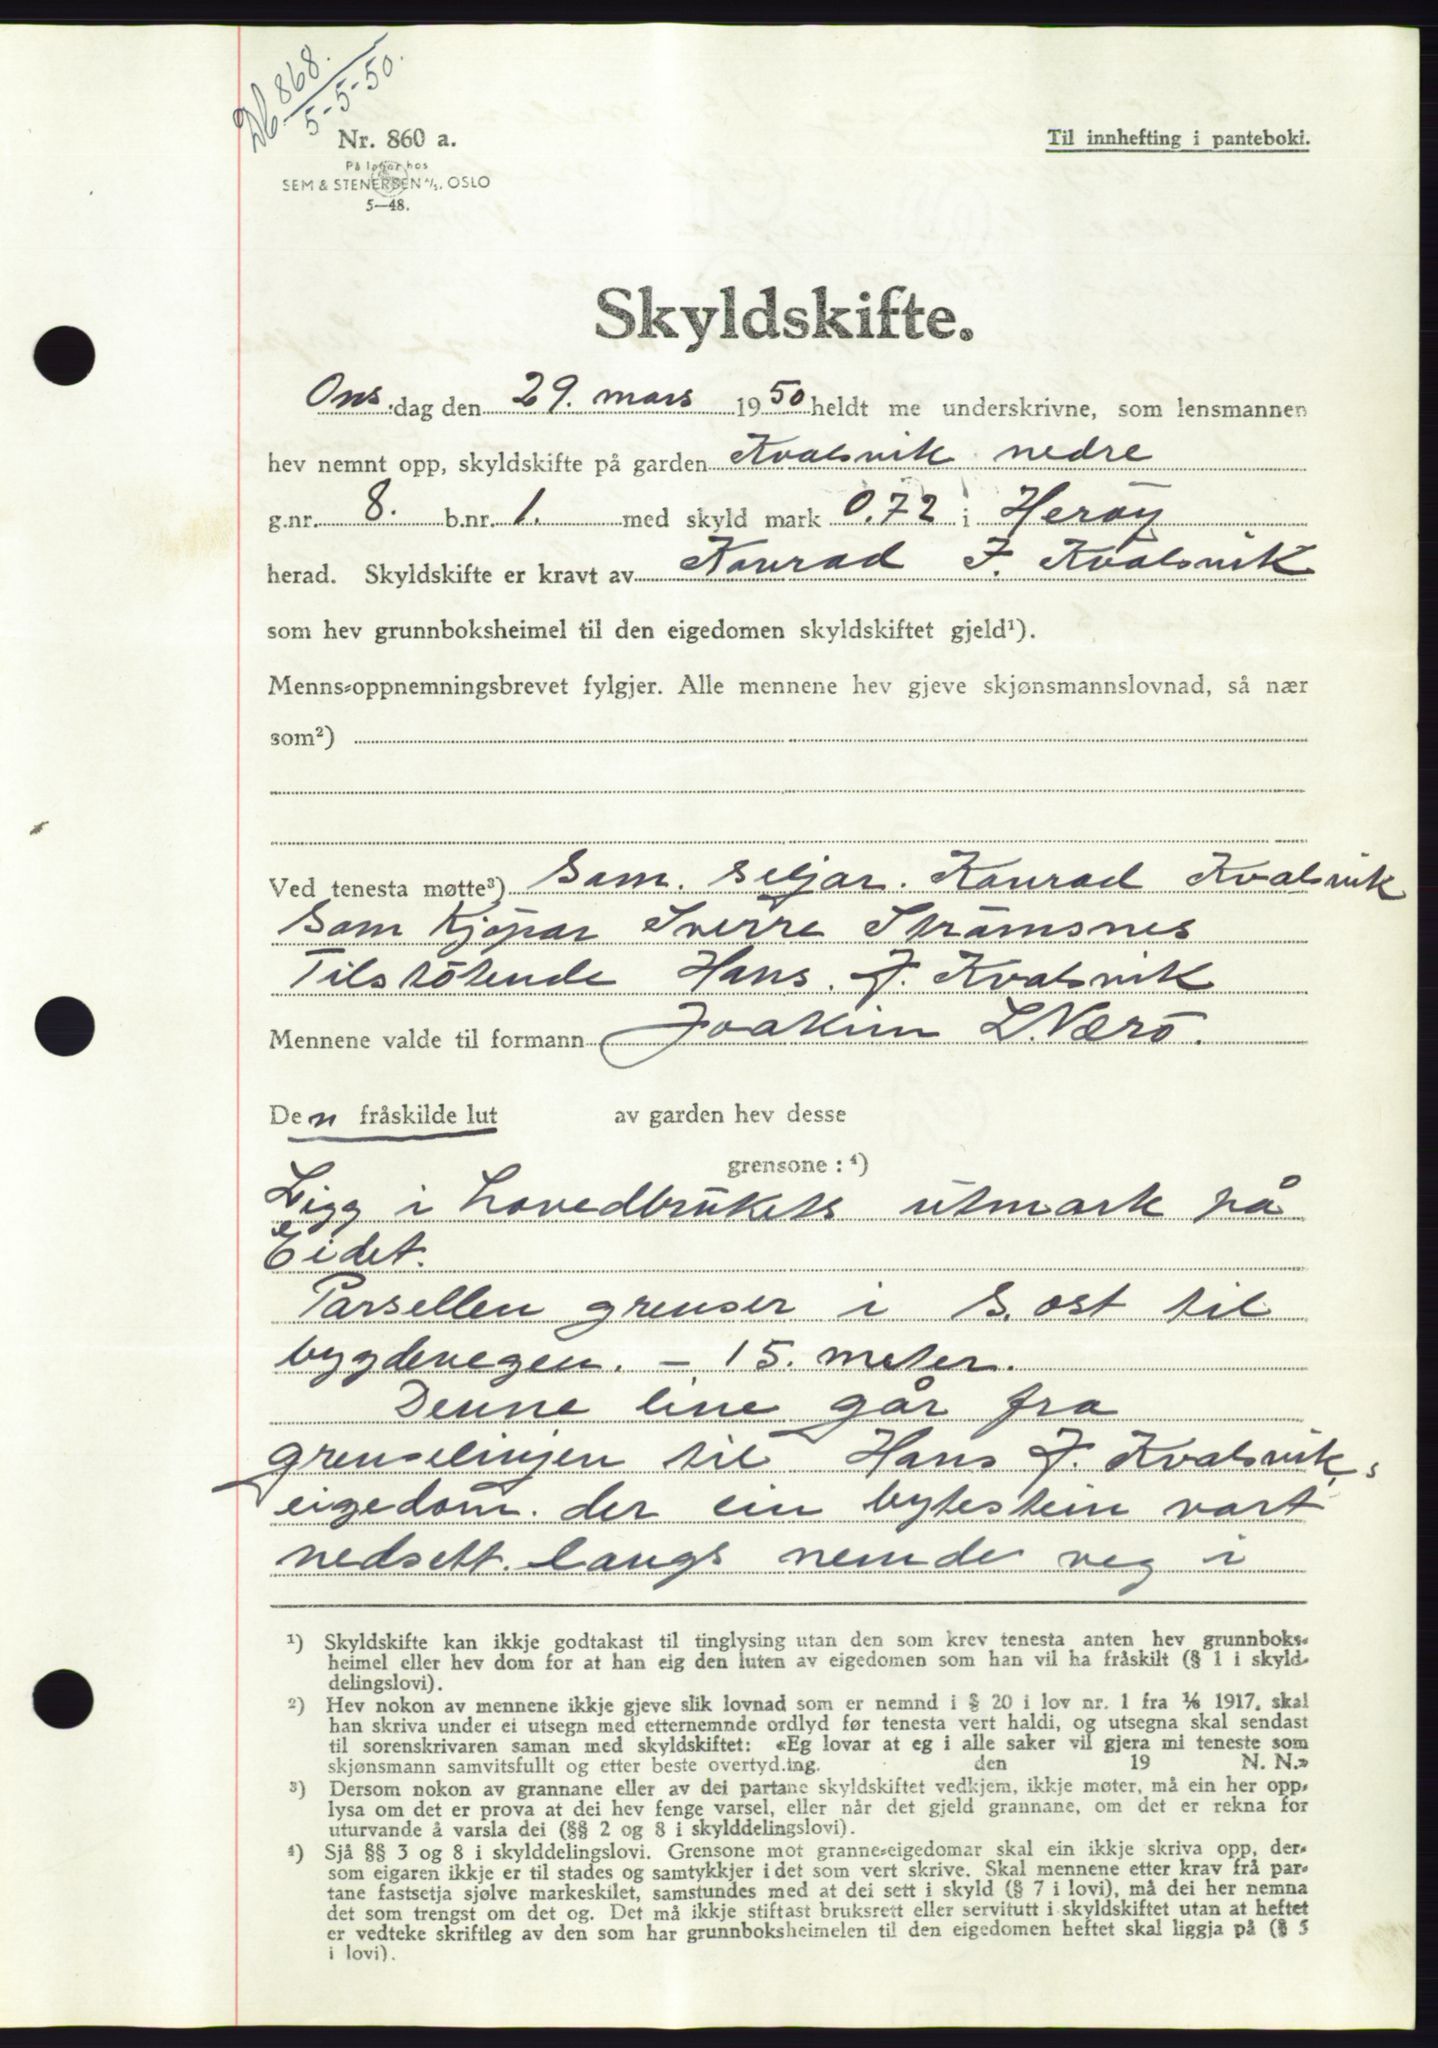 Db 868.
5-5-50.
Nr. 860 a.
På lager hos
SEM & STENERSEN A/S, OSLO
5—48.
Til innhefting i panteboki.
Skyldskifte.
Ons.dag den 29. mars 1950 heldt me underskrivne, som lensmannen
hev nemnt opp, skyldskifte på garden Kvalsvik nedre
g.nr. 8. b.nr. 1. med skyld mark 0.72 i Herøy
herad. Skyldskifte er kravt av Konrad J. Kvalsvik
som hev grunnboksheimel til den eigedomen skyldskiftet gjeld¹).
Menns-oppnemningsbrevet fylgjer. Alle mennene hev gjeve skjønsmannslovnad, så nær
som²)
Ved tenesta møtte³) Som. seljar. Konrad Kvalsvik
Som Kjöpar Sverre Strömsnes
Tilstötende Hans. J. Kvalsvik
Mennene valde til formann Joakim L. Nærö.
Den fråskilde lut av garden hev desse
grensone : ⁴)
Ligg i hovedbrukets utmark på
Eidet.
Parsellen grenser i S. ost til
bygdevegen. – 15. meter.
Denne line går fra
grenselinjen til Hans J. Kvalsvik,s
eigedom. der ein bytestein vart
nedsett. langs nemde veg i
¹) Skyldskifte kan ikkje godtakast til tinglysing utan den som krev tenesta anten hev grunnboks-
heimel eller hev dom for at han eig den luten av eigedomen som han vil ha fråskilt (§ 1 i skyld-
delingslovi).
²) Hev nokon av mennene ikkje gjeve slik lovnad som er nemnd i § 20 i lov nr. 1 fra 1/6 1917, skal
han skriva under ei utsegn med etternemnde ordlyd før tenesta vert haldi, og utsegna skal sendast
til sorenskrivaren saman med skyldskiftet: «Eg lovar at eg i alle saker vil gjera mi teneste som
skjønsmann samvitsfullt og etter beste overtyd.ing. den 19 N. N.»
³) Dersom nokon av grannane eller av dei partane skyldskiftet vedkjem, ikkje møter, må ein her opp-
lysa om det er prova at dei hev fenge varsel, eller når det gjeld grannane, om det er rekna for
uturvande å varsla dei (§§ 2 og 8 i skylddelingslovi).
⁴) Sjå §§ 3 og 8 i skylddelingslovi. Grensone mot granne-eigedomar skal ein ikkje skriva opp, der-
som eigaren ikkje er til stades og samtykkjer i det som vert skrive. Skal mennene etter krav frå par-
tane fastsetja sjølve markeskilet, samstundes med at dei sett i skyld (§ 7 i lovi), må dei her nemna
det som trengst om det og. Det må ikkje stiftast bruksrett eller servitutt i skyldskiftet utan at heftet
er vedteke skriftleg av den som har grunnboksheimelen til den eigedomen heftet skal liggja på (§ 5
i lovi).